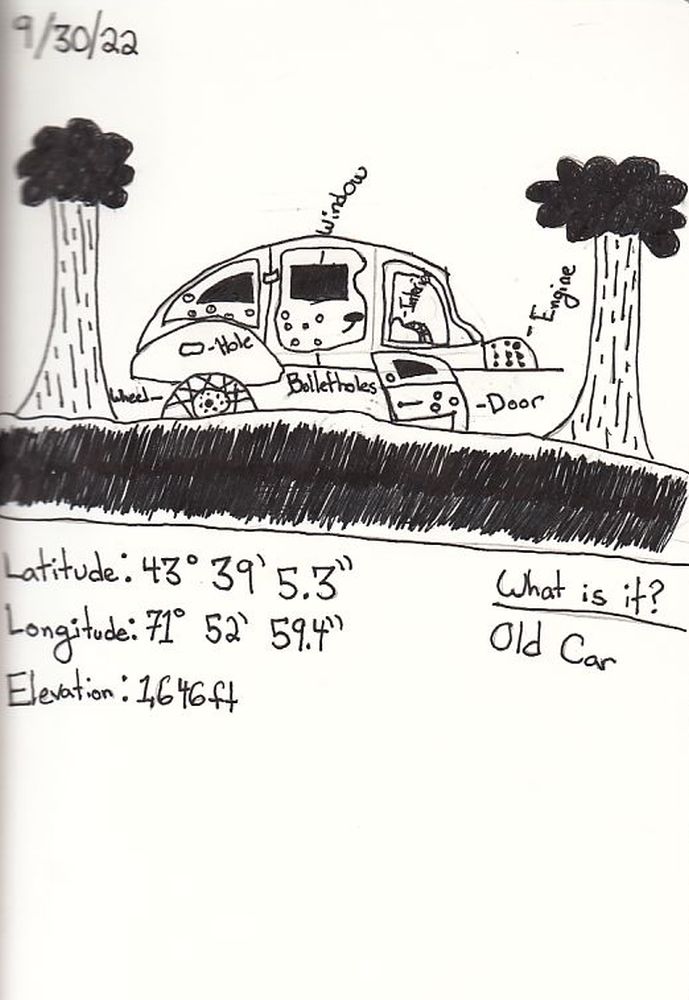 9/30/22
Window
-Engine
-Interior
-Hole
Wheel-
Bolletholes
-Door
Latitude: 43° 39' 5.3"
Longitude: 71° 52' 59.4"
Elevation: 1,646ft
What is it?
Old Car